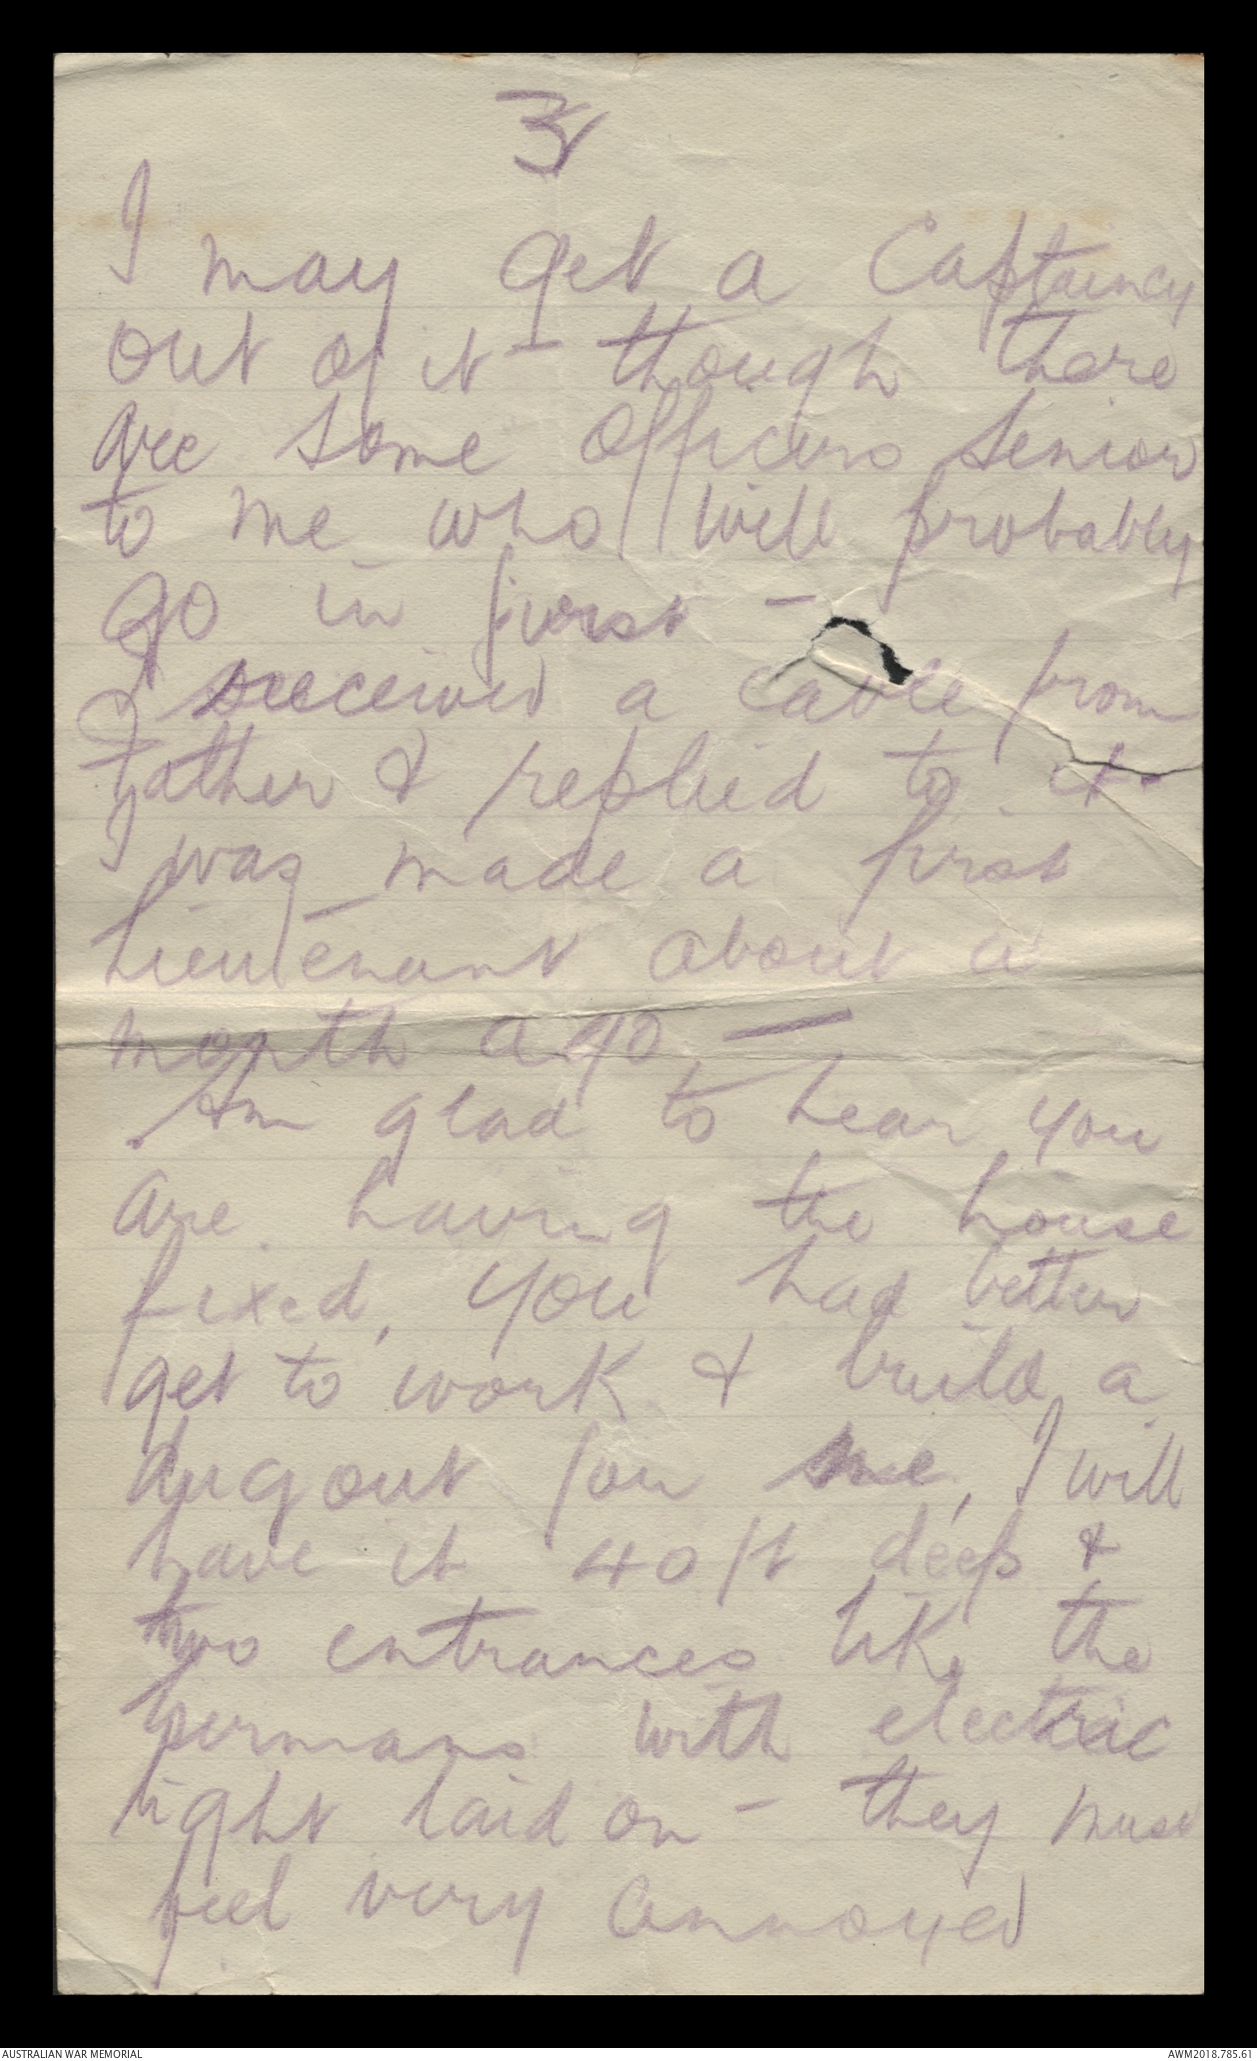 3
I may get a Captaincy
out of it - though there
are some officers senior
to me who will probably
go in first -
I received a cable from
Father & replied to it.
I was made a first
Lieutenant about a
month ago -
Am glad to hear you
are having the house
fixed, you had better
get to work & build a
dugout for me, I will
have it 40 ft deep &
two entrances like the
Germans with electric
light laid on - they must
feel very annoyed
AUSTRALIAN WAR MEMORIAL
AWM2018.785.61